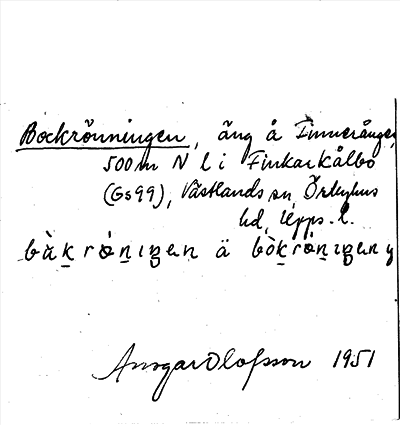 Bockrönningen, äng å Finnerånger,
500 m N l i Finkarkålbo
(Gs99), Västlands sn, Örbyhus
hd, Upps. l.
bòk̠rö̀n̠iŋen ä bòk̠rö̀n̠iŋen y
Ansgar Olofsson 1951